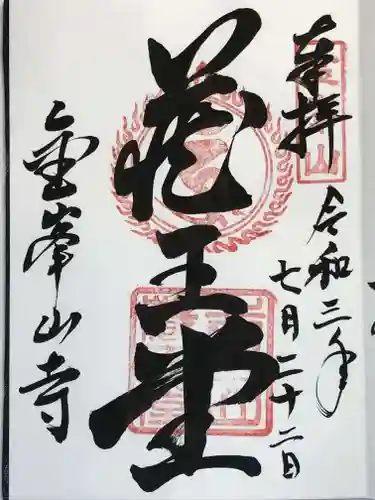 奉拝
令和三年
七月二十二日
蔵王堂
金峯山寺